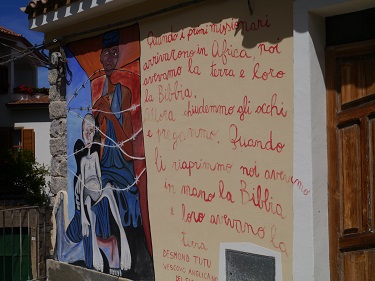 Quando i primi missionari
arrivarono in Africa, noi
avevamo la terra e loro
la Bibbia.
Allora chiudemmo gli occhi
e pregammo. Quando
li riaprimmo noi avevamo
in mano la Bibbia
e loro avevano la
terra
DESMOND TUTU
VESCOVO ANGLICANO